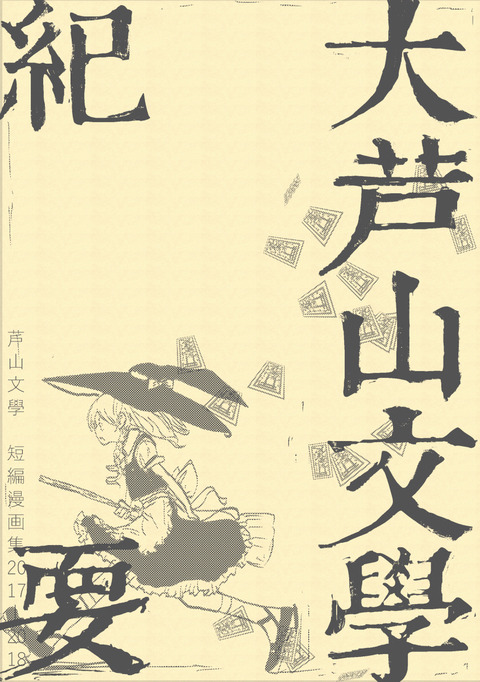 大芦山文學
紀要
芦山文學 短編漫画集2017 2018